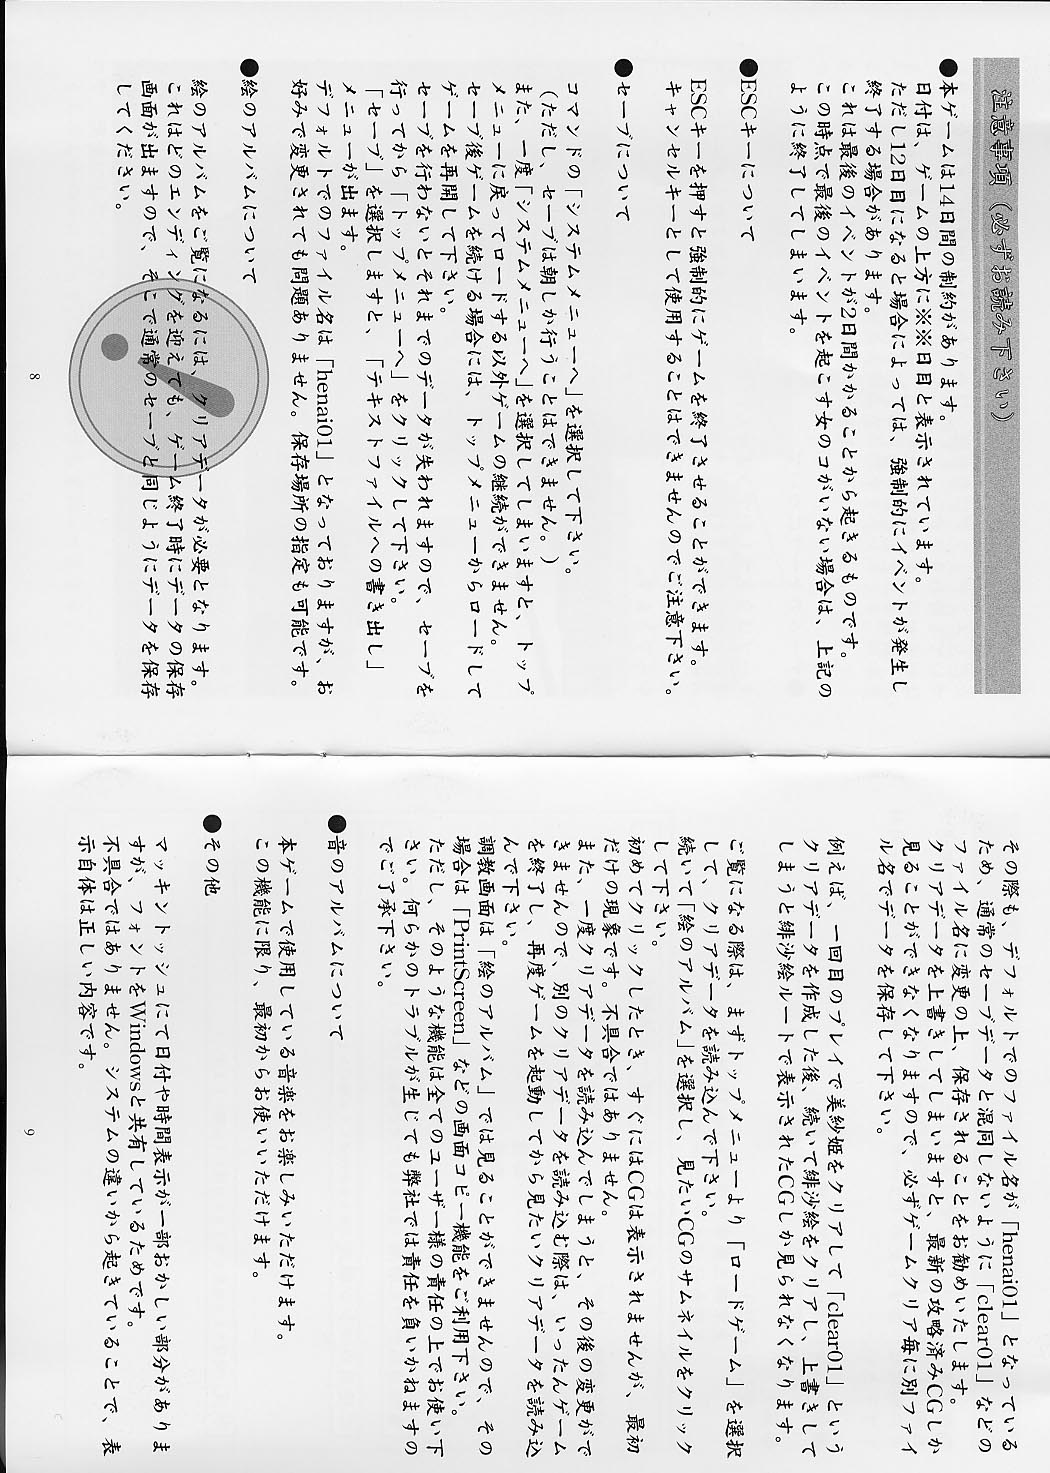 注意事項（必ずお読み下さい）
●本ゲームは14日間の制約があります。
日付は、ゲームの上方に※※日目と表示されています。
ただし12日目になると場合によっては、強制的にイベントが発生し
終了する場合があります。
これは最後のイベントが2日間かかることから起きるものです。
この時点で最後のイベントを起こす女のコがいない場合は、上記の
ように終了してしまいます。
●ESCキーについて
ESCキーを押すと強制的にゲームを終了させることができます。
キャンセルキーとして使用することはできませんのでご注意下さい。
●セーブについて
コマンドの「システムメニューへ」を選択して下さい。
（ただし、セーブは朝しか行うことはできません。）
また、一度「システムメニューへ」を選択してしまいますと、トップ
メニューに戻ってロードする以外ゲームの継続ができません。
セーブ後ゲームを続ける場合には、トップメニューからロードして
ゲームを再開して下さい。
セーブを行わないとそれまでのデータが失われますので、セーブを
行ってから「トップメニューへ」をクリックして下さい。
「セーブ」を選択しますと、「テキストファイルへの書き出し」
メニューが出ます。
デフォルトでのファイル名は「henai01」となっておりますが、お
好みで変更されても問題ありません。保存場所の指定も可能です。
●絵のアルバムについて
絵のアルバムをご覧になるには、クリアデータが必要となります。
これはどのエンディングを迎えても、ゲーム終了時にデータの保存
画面が出ますので、そこで通常のセーブと同じようにデータを保存
してください。
8
その際も、デフォルトでのファイル名が「henai01」となっている
ため、通常のセーブデータと混同しないように「clear01」などの
ファイル名に変更の上、保存されることをお勧めいたします。
クリアデータを上書きしてしまいますと、最新の攻略済みCGしか
見ることができなくなりますので、必ずゲームクリア毎に別ファイ
ル名でデータを保存して下さい。
例えば、一回目のプレイで美紗姫をクリアして「clear01」という
クリアデータを作成した後、続いて緋沙絵をクリアし、上書きして
しまうと緋沙絵ルートで表示されたCGしか見られなくなります。
ご覧になる際は、まずトップメニューより「ロードゲーム」を選択
して、クリアデータを読み込んで下さい。
続いて「絵のアルバム」を選択し、見たいCGのサムネイルをクリック
して下さい。
初めてクリックしたとき、すぐにはCGは表示されませんが、最初
だけの現象です。不具合ではありません。
また、一度クリアデータを読み込んでしまうと、その後の変更がで
きませんので、別のクリアデータを読み込む際は、いったんゲーム
を終了し、再度ゲームを起動してから見たいクリアデータを読み込
んで下さい。
調教画面は「絵のアルバム」では見ることができませんので、その
場合は「PrintScreen」などの画面コピー機能をご利用下さい。
ただし、そのような機能は全てのユーザー様の責任の上でお使い下
さい。何らかのトラブルが生じても弊社では責任を負いかねますの
でご了承下さい。
●音のアルバムについて
本ゲームで使用している音楽をお楽しみいただけます。
この機能に限り、最初からお使いいただけます。
●その他
マッキントッシュにて日付や時間表示が一部おかしい部分がありま
すが、フォントをWindowsと共有しているためです。
不具合ではありません。システムの違いから起きていることで、表
示自体は正しい内容です。
9